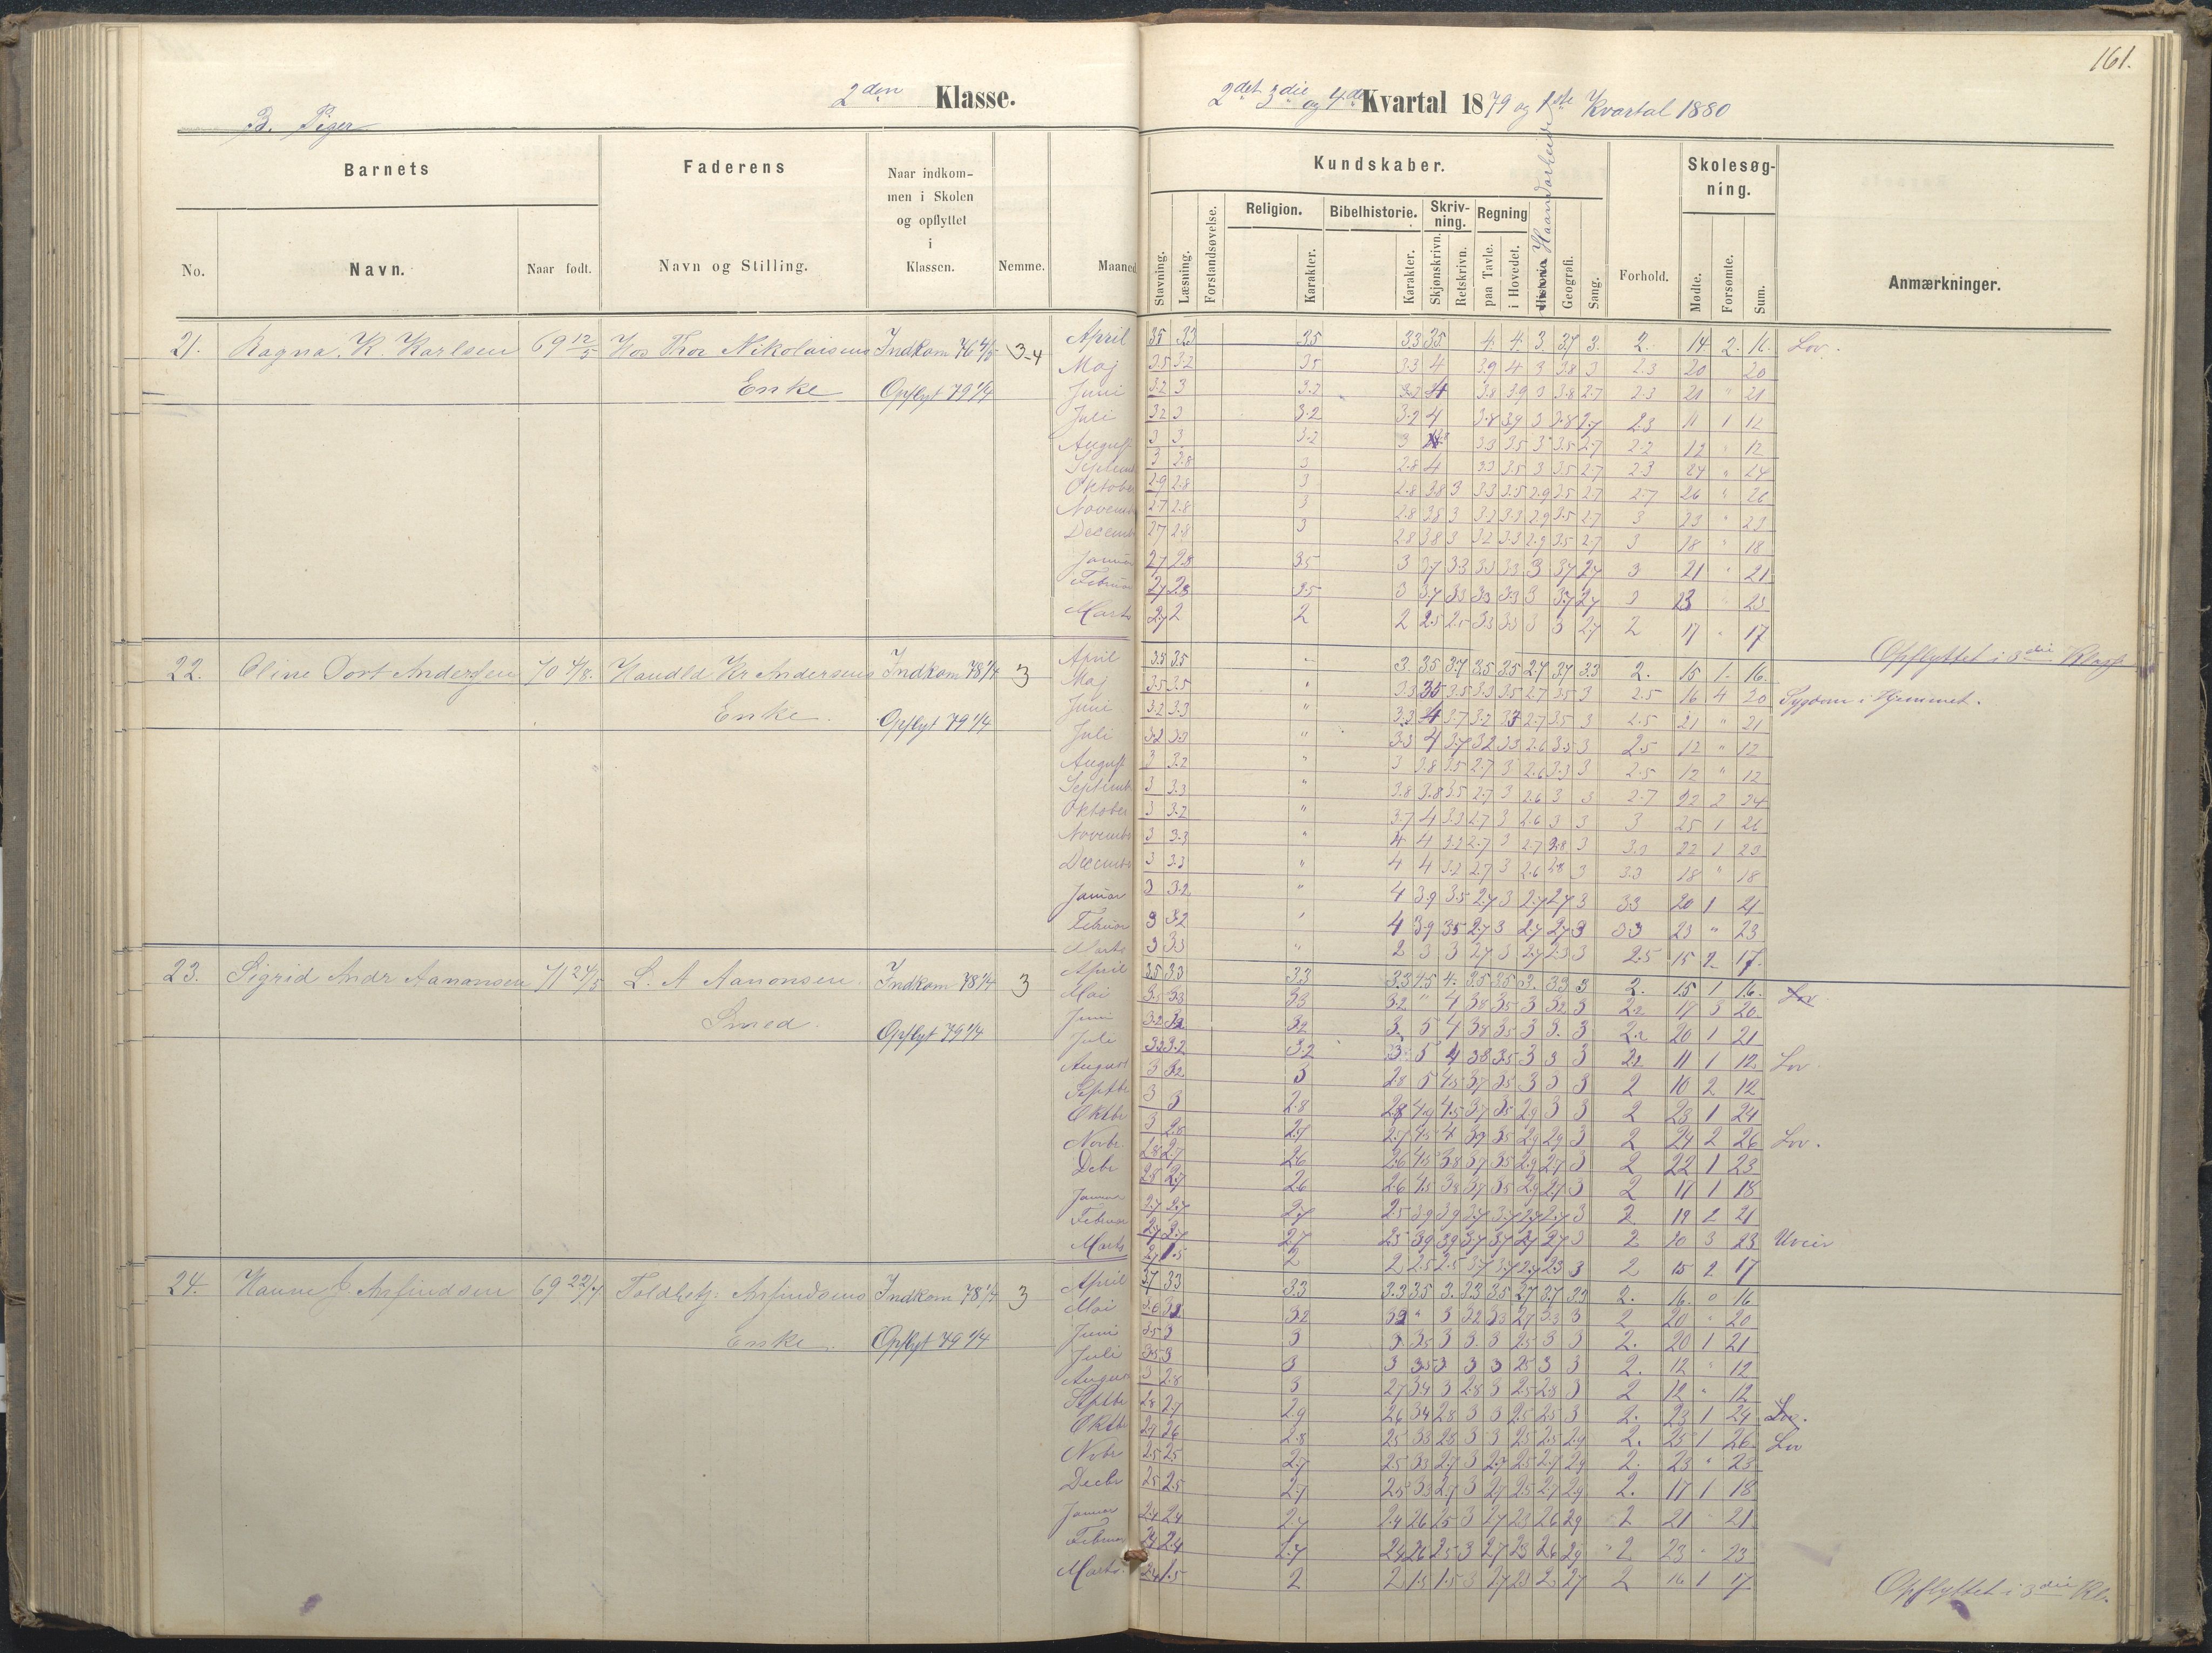 161.
2den Klasse.
2det 3die og 4de Kvartal 1879 og 1ste Kvartal 1880
B. Piger
Barnets
Faderens
Naar indkommen i Skolen og opflyttet i Klassen.
Nemme.
Maaned
Kundskaber.
Forhold.
Skolesøgning.
Anmærkninger.
No.
Navn.
Naar født.
Navn og Stilling.
Stavning.
Læsning.
Forstandsøvelse.
Religion.
Karakter.
Bibelhistorie.
Karakter.
Skrivning.
Skjønskrivn.
Retskrivn.
Regning
paa Tavle.
i Hovedet.
Historie
Haandarbeide
Geografi.
Sang.
Mødte.
Forsømte.
Sum.
21. Ragna. K. Karlsen 69 12/5 Hos Thor Nikolaisens Indkom 3-4 April 35 33 35 33 35 4. 4. 3 37 3. 2. 14 2. 16. Lov.
Enke Opflyt 79 1/4
Maj 3.5 3.2 35 3.3 4 3.9 4 3 3.8 3 2.3 20 20
Juni 3.2 3 3.2 3.2 4 3.8 3.9 3 3.8 2.7 2.3 21 " 21
Juli 3.2 3 3.2 3.2 4 3.8 3.9 3 3.8 2.7 2.3 11 1 12
August 3 3 3.2 3 3.3 3.5 3 3.5 2.7 2.2 12 " 12
Septemb 3 2.8 3 2.8 4 3.3 3.5 3 3.5 2.7 2.3 24 " 24
Oktober 2.9 2.8 3 2.8 3.8 3 3.3 3.5 2.9 3.5 2.7 2.7 26 " 26
Novemb 2.7 2.8 3 2.8 3.8 3 3.2 3.3 2.9 3.5 2.7 3 23 " 23
Decemb 2.7 2.8 3 2.8 3.8 3 3.2 3.3 2.9 3.5 2.7 3 18 " 18
Januar 2.7 2.8 3.5 3 3.7 3.3 3.3 3.3 3 3.7 2.7 3 21 " 21
Februar 2.7 2.8 3.5 3 3.7 3.3 3.3 3.3 3 3.7 2.7 3 23 23
Marts 2.7 2 2 2 2.5 2.5 3.3 3.3 3 3 2.7 2 17 " 17
Opflyttet i 3die Klasse
22. Oline Dort Andersen 70 4/8. Handld Kr Andersens Indkom 78 1/4 3 April 3.5 3.5 " 3. 3.5 3.7 3.5 3.5 2.7 3.7 3.3 2. 15 1. 16.
Enke. Opflyt 79 1/4
Maj 3.5 3.5 " 3.3 3.5 3.5 3.3 3.5 2.7 3.5 3 2.5 16 4 20 Sygdom i Hjemmet.
Juni 3.2 3.3 " 3.3 4 3.7 3.2 3.3 2.7 3.5 3 2.5 21 " 21
Juli 3.2 3.3 " 3.3 4 3.7 3.2 3.3 2.6 3.5 3 2.5 12 " 12
August 3 3.2 " 3 3.8 3.5 2.7 3 2.6 3.3 3 2.5 12 " 12
Septemb 3 3.3 " 3.8 3.8 3.5 2.7 3 2.6 3 3 2.7 22 2 24
Oktober 3 3.2 " 3.7 4 3.3 2.7 3 2.6 3 3 3 25 1 26
Novemb 3 3.3 " 4 4 3.2 2.7 3 2.7 2.8 3 3.3 22 1 23
Decemb 3 3.3 " 4 4 3.2 2.7 3 2.6 2.8 3 3.3 18 " 18
Januar 3 3.2 " 4 3.9 3.5 2.7 3 2.7 2.7 3 3.3 20 1 21
Februar 3 3.2 " 4 3.9 3.5 2.7 3 2.7 2.7 3 3.3 23 " 23
Marts 3 3.3 " 2 3 3 2.7 3 2.7 2.3 3 2.5 15 2 17.
23. Sigrid Andr Aanonsen 71 24/5 L. A Aanonsen. Indkom 78 1/4 3 April 3.5 3.3 3.3 3.3 4.5 4. 3.5 3.5 3. 3.3 3 2. 15 1 16. Lov
Smed. Opflyt 79 1/4
Mai 3.5 3.3 3.3 3.2 " 4 3.8 3.5 3 3.2 3 2.2 17 3 20
Juni 3.2 3.2 3.2 3. 5 4 3.8 3.5 3 3. 3 2.2 20 1 21
Juli 3.2 3.2 3.2 3. 5 4 3.8 3.5 3 3 3 2.2 11 1 12 Lov.
August 3 3.2 3 2.8 5 4.5 3.7 3.5 3 3 3 2 10 2 12
Septbr 3 3 2.8 2.8 4.9 4.5 3.7 3.5 2.9 3 3 2 23 1 24
Oktbr 3 2.8 2.7 2.7 4.5 4 3.7 3.5 2.9 2.9 3 2 24 2 26 Lov.
Novbr 2.8 2.7 2.6 2.6 4.5 3.8 3.7 3.5 2.9 2.7 3 2 22 1 23
Debr 2.8 2.7 2.6 2.6 4.5 3.8 3.7 3.5 2.9 2.7 3 2 17 1 18
Januar 2.7 2.7 2.7 2.5 3.9 3.9 3.7 3.7 2.7 2.7 3 2 19 2 21
Februar 2.7 2.7 2.7 2.5 3.9 3.9 3.7 3.7 2.7 2.7 3 2 20 3 23 Uveir
Marts 2.7 1.5 2 2 2.5 2.5 3.7 3.7 2.7 2.3 3 2 15 2 17
24. Hanne J Arfindsen 69 22/7 Toldbetj. Arfindsens Indkom 78 1/4 3 April 3.7 3.3 3.3 3.3 3.5 3. 3.3 3.5 2.7 3.7 3.3 2. 16. 0 16
Enke. Opflyt 79 1/4
Mai 3.6 3.2 3.2 " 3 3.2 3.3 2.7 3.3 3 2 20 " 20
Juni 3.5 3 3 3 3.5 3 3. 3 2.5 3 3 2. 20 1 21
Juli 3.5 3 3 3 3.5 3 3 3 2.5 3 3 2. 12 " 12
August 3 2.8 3 2.7 3.4 3 2.8 3 2.5 2.8 3 2 12 " 12
Septbr 2.8 2.7 2.9 2.6 3.4 2.8 3 3 2.5 2.5 3 2. 23 1 24 Lov.
Oktbr 2.7 2.6 2.8 2.5 3.3 2.8 3 3 2.5 2.5 2.9 2. 25 1 26 Lov
Nobr 2.5 2.5 2.7 2.5 3.3 2.7 3 2.7 2.5 2.7 2.9 2. 23 " 23
Decbr 2.5 2.5 2.7 2.5 3.3 2.7 3 2.7 2.5 2.7 2.9 2. 17 1 18
Januar 2.4 2.4 2.7 2.4 2.6 2.5 3 2.7 2.3 2.6 2.9 2 21 21
Februar 2.4 2.4 2.7 2.4 2.6 2.5 3 2.7 2.3 2.6 2.9 2 23 " 23
Marts. 2.4 1.5 2 2 1.5 1.5 3 2.7 2.3 2 2.7 2 16 1 17
Opflyttet i 3die Kl.